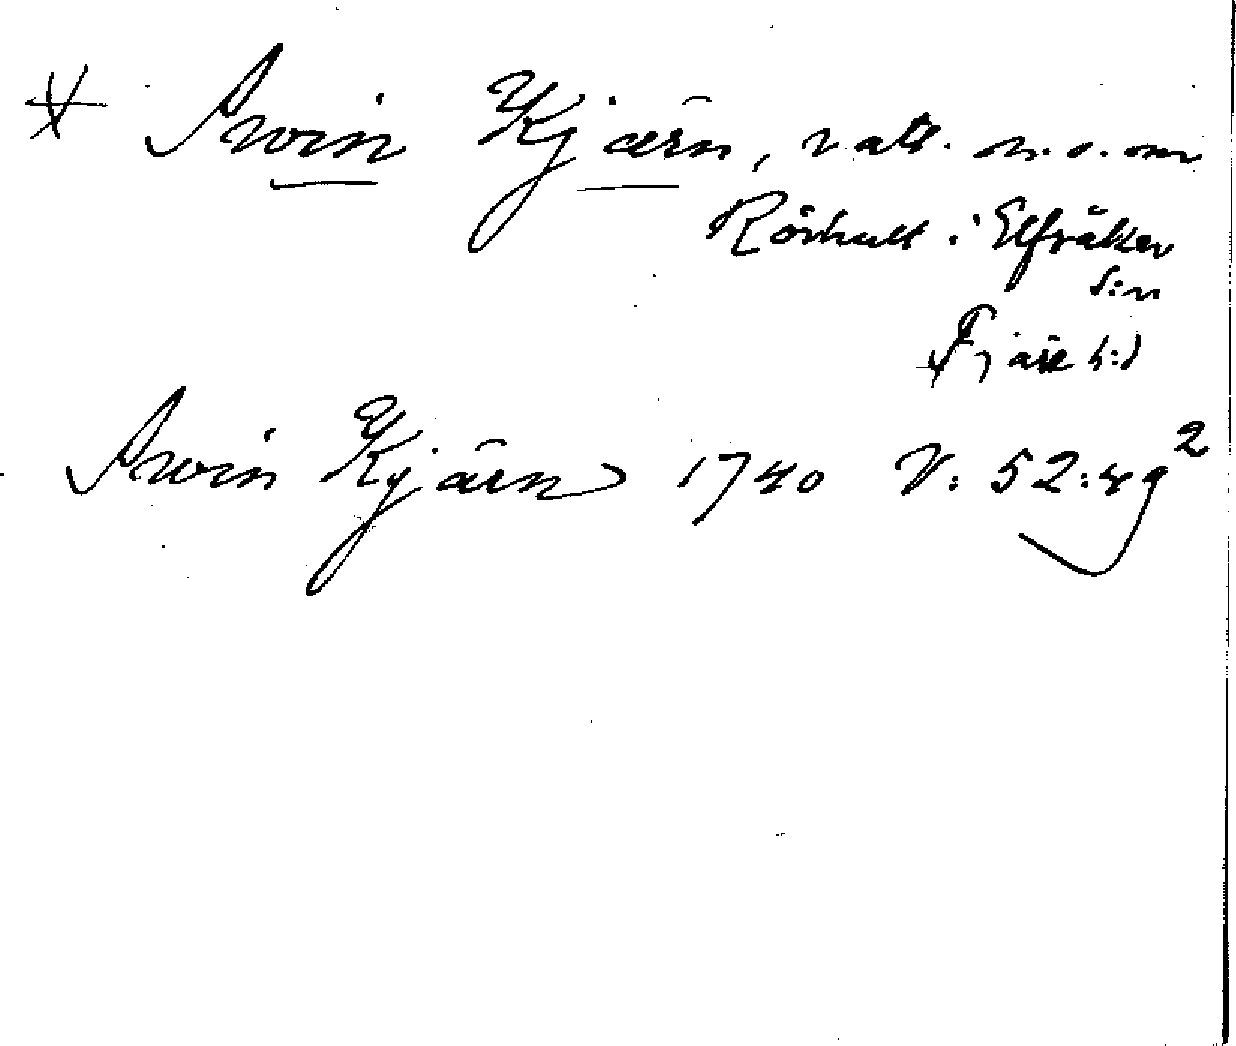 * Swin Kjærn, vatt. n.o.om
Rörhult i Elfsåker
s:n
Fjäre h:d
Swin Kjärn 1740 V: 52:49²